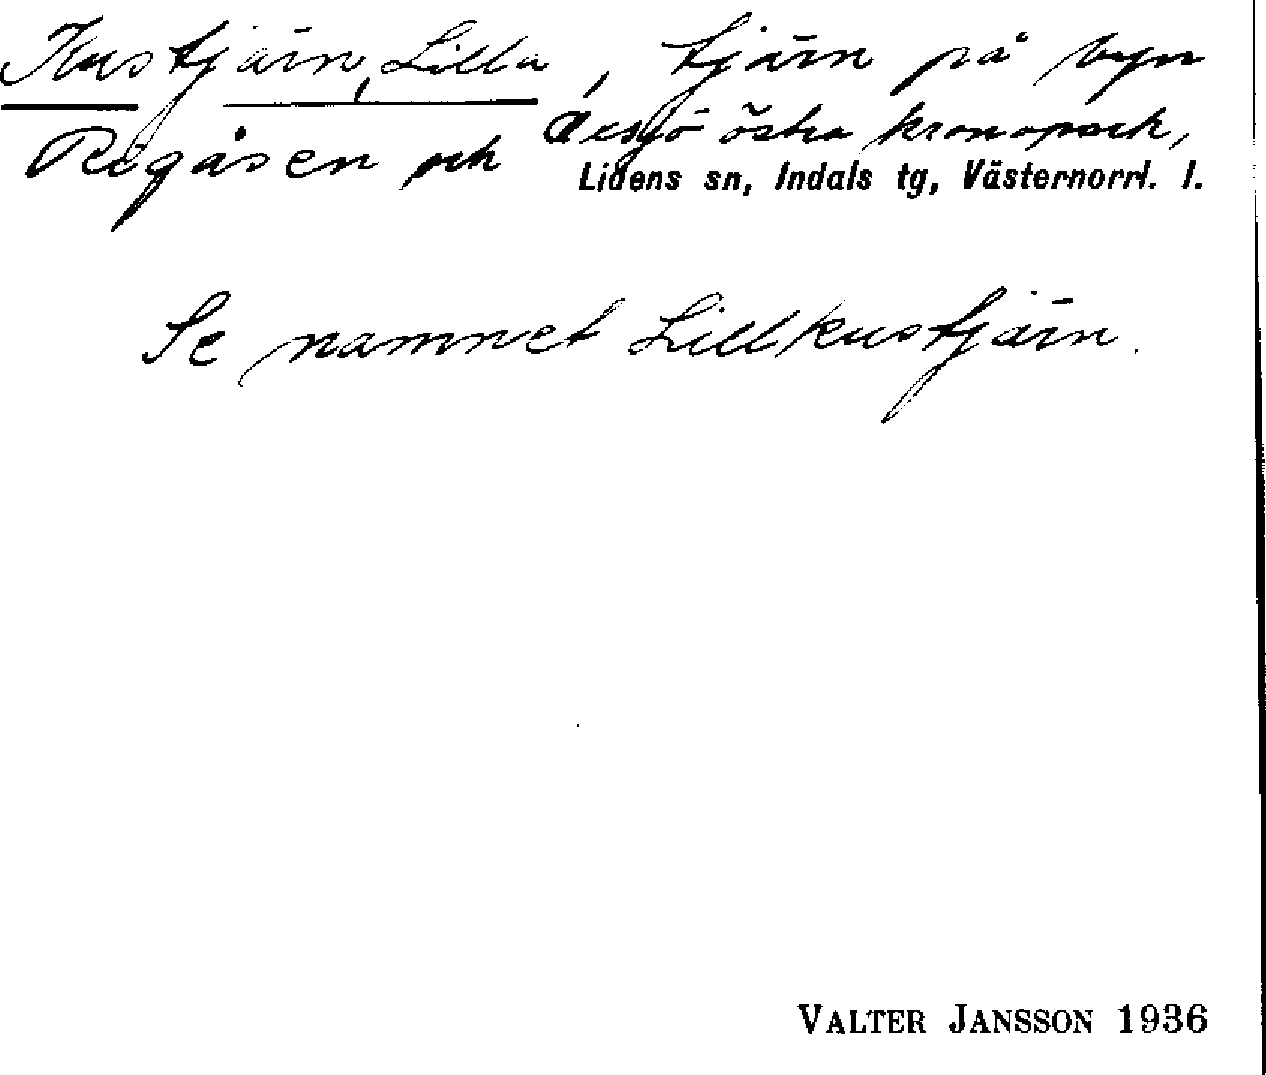 Kustjärn, Lilla, tjärn på byn
Rogåsen och Oxsjö östra kronopark,
Lidens sn, Indals tg, Västernorrl. l.
Se namnet Lillkustjärn.
VALTER JANSSON 1936